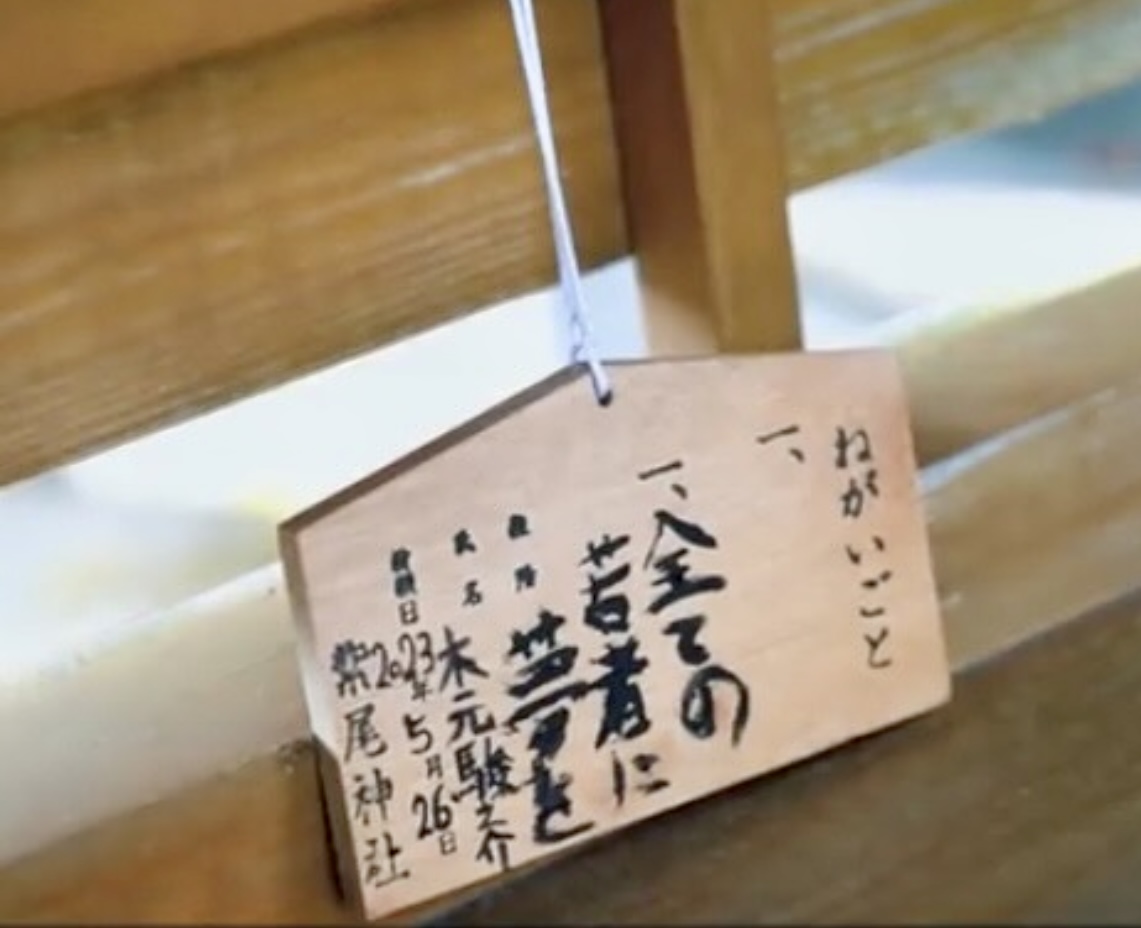 ねがいごと
一、
一、全ての
若者に
夢を
段階
氏名 木元駿之介
祈願日 2023年5月26日
紫尾神社